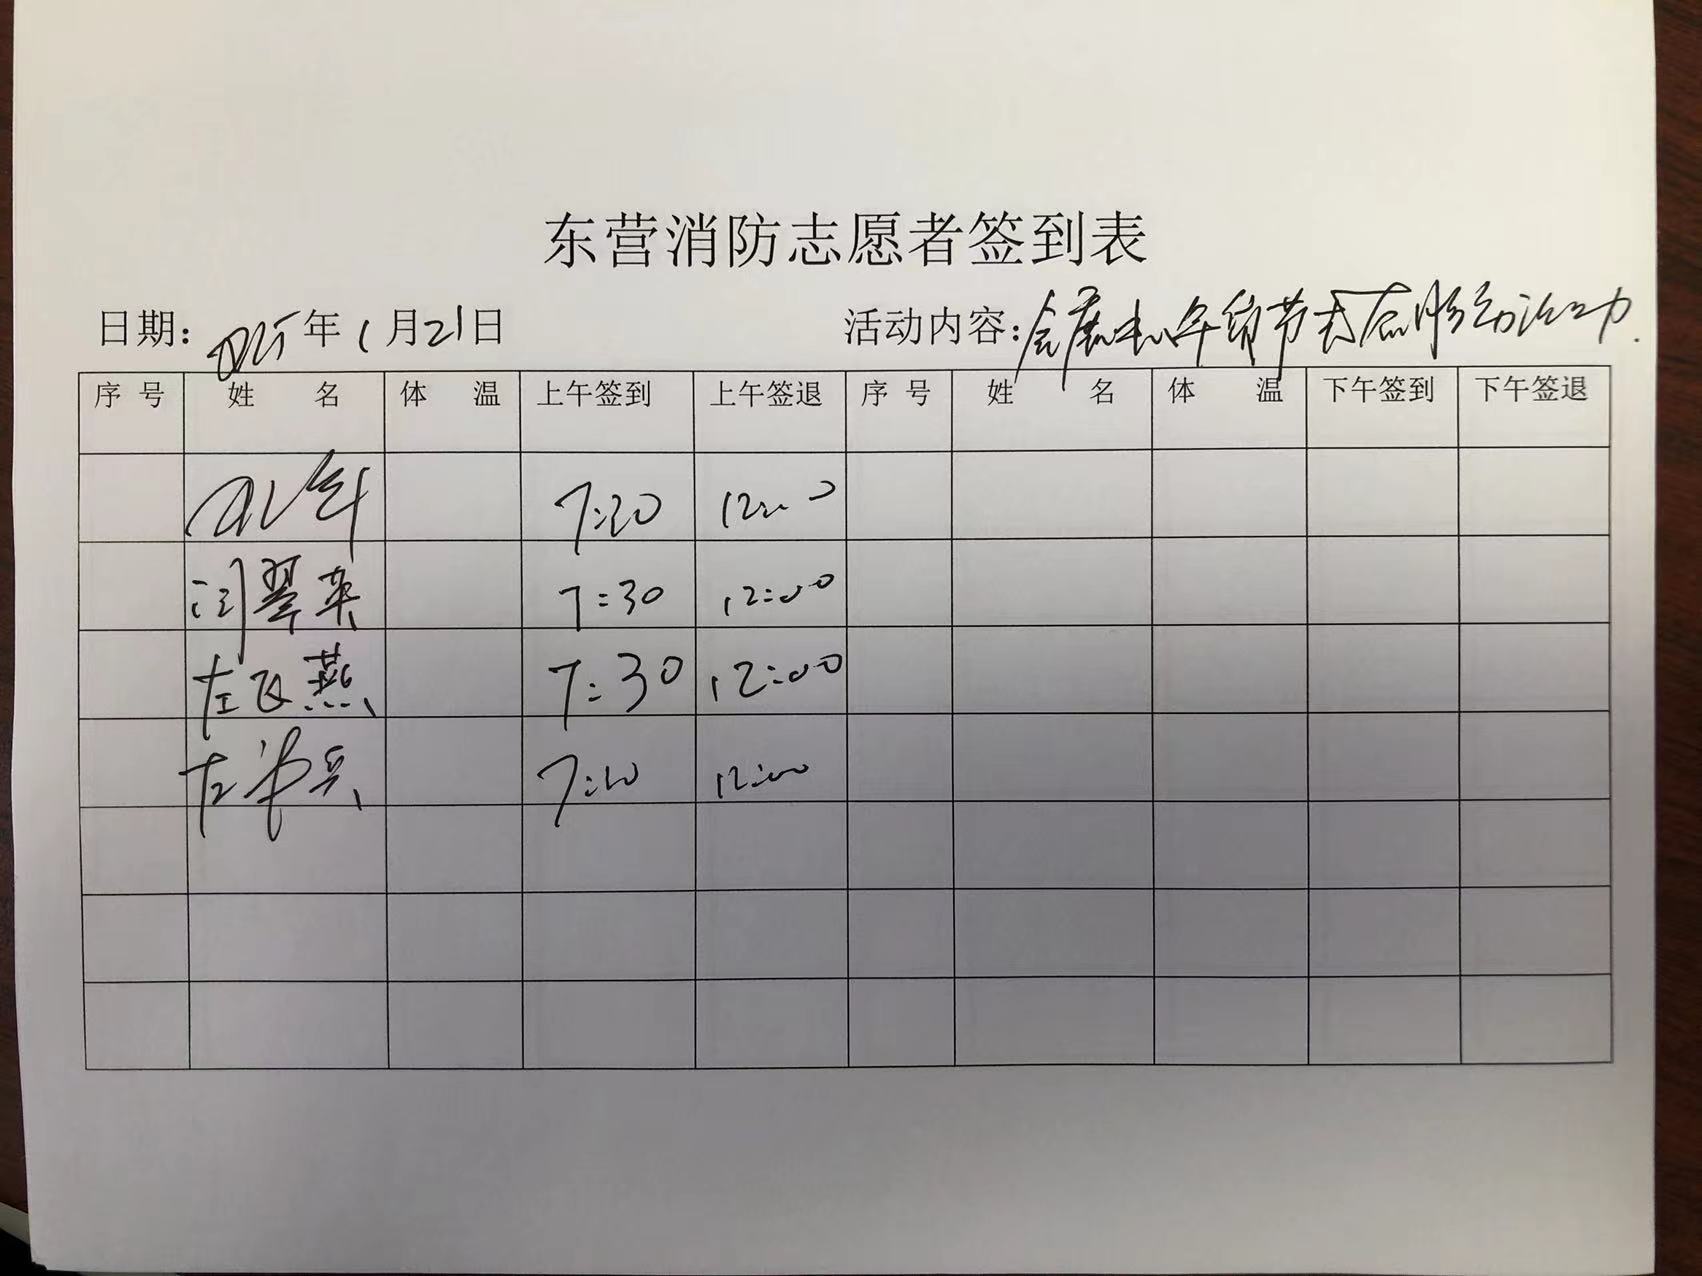 东营消防志愿者签到表
日期: 2025年1月21日 活动内容: 会展中心年货节志愿服务活动.
序号 姓名 体温 上午签到 上午签退 序号 姓名 体温 下午签到 下午签退
7:30 12:00
闫翠英 7:30 12:00
左飞燕 7:30 12:00
左 兵 7:20 12:00